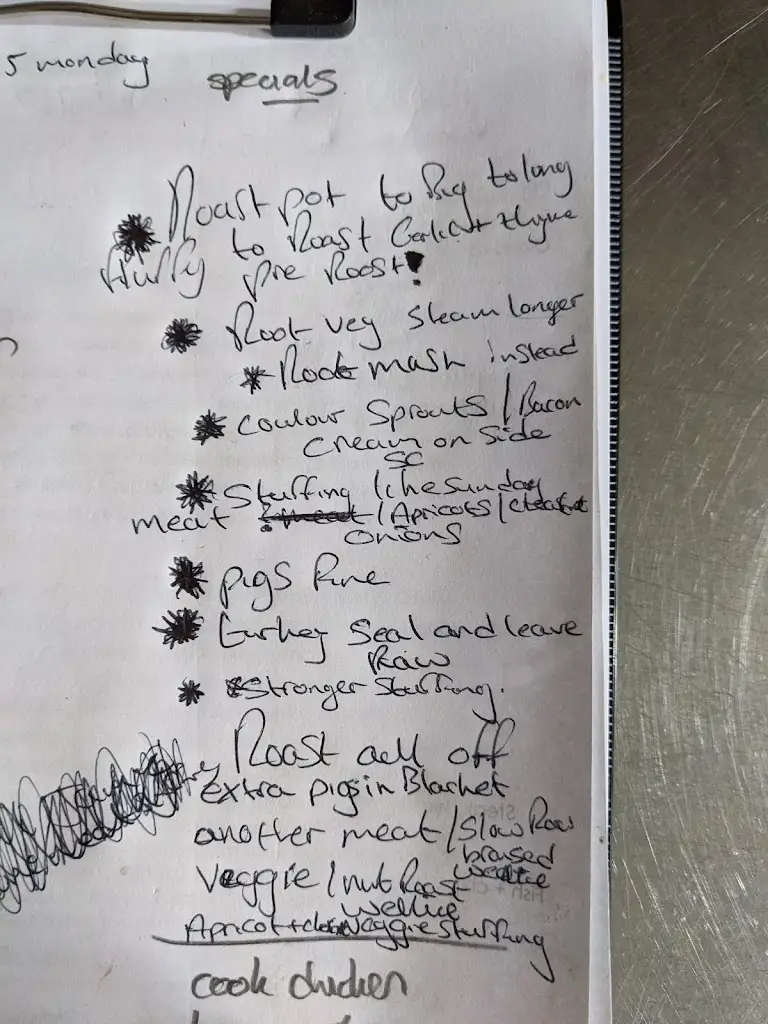 5 monday
specials
Roast pot to Big to long
to Roast Garlic + thyme
fluffy pre Roast!
Root veg steam longer
Root mash instead
coulour Sprouts / Bacon
cream on side
SC
Stuffing / the sunday
meat / Apricots /
onions
pigs fine
turkey Seal and leave
Raw
Stronger Stuffing.
Roast all off
extra pigs in Blanket
another meat / Slow
braised
veggie / nut Roast
wellie
Apricot + veggie stuffing
cook chicken